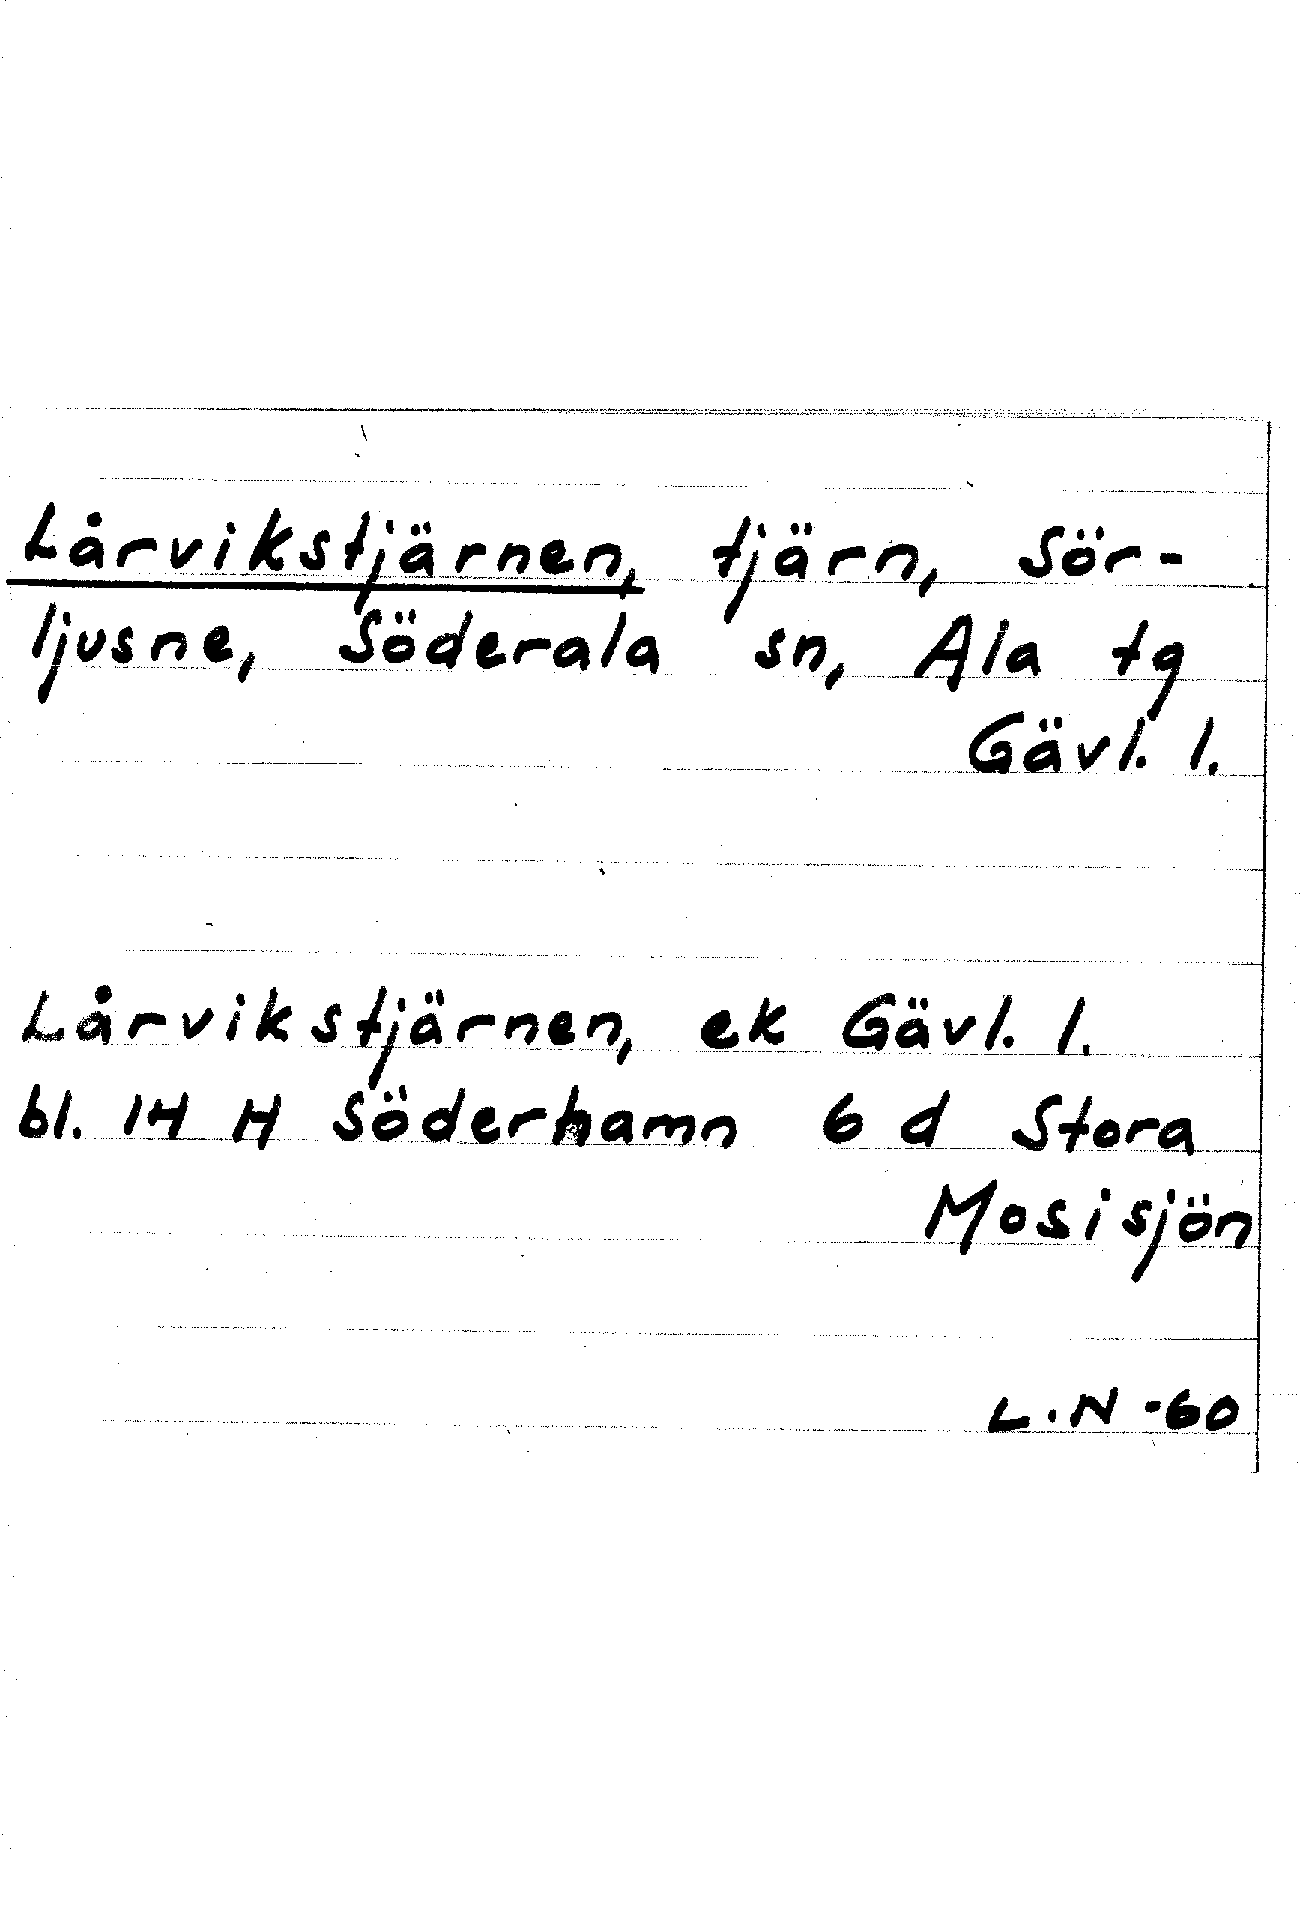 Lårvikstjärnen, tjärn, Sör-
ljusne, Söderala sn, Ala tg
Gävl. l.
Lårvikstjärnen, ek Gävl. l.
bl. 14 H Söderhamn 6 d Stora
Mosisjön
L.N -60